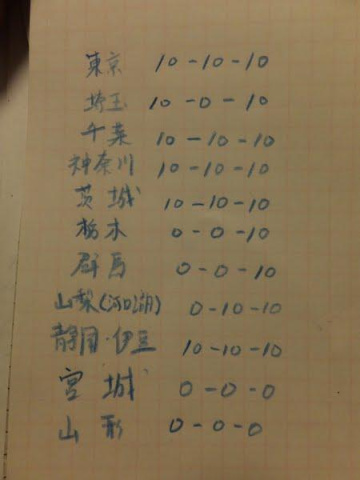 東京 10-10-10
埼玉 10-0-10
千葉 10-10-10
神奈川 10-10-10
茨城 10-10-10
栃木 0-0-10
群馬 0-0-10
山梨(河口湖) 0-10-10
静岡・伊豆 10-10-10
宮城 0-0-0
山形 0-0-0